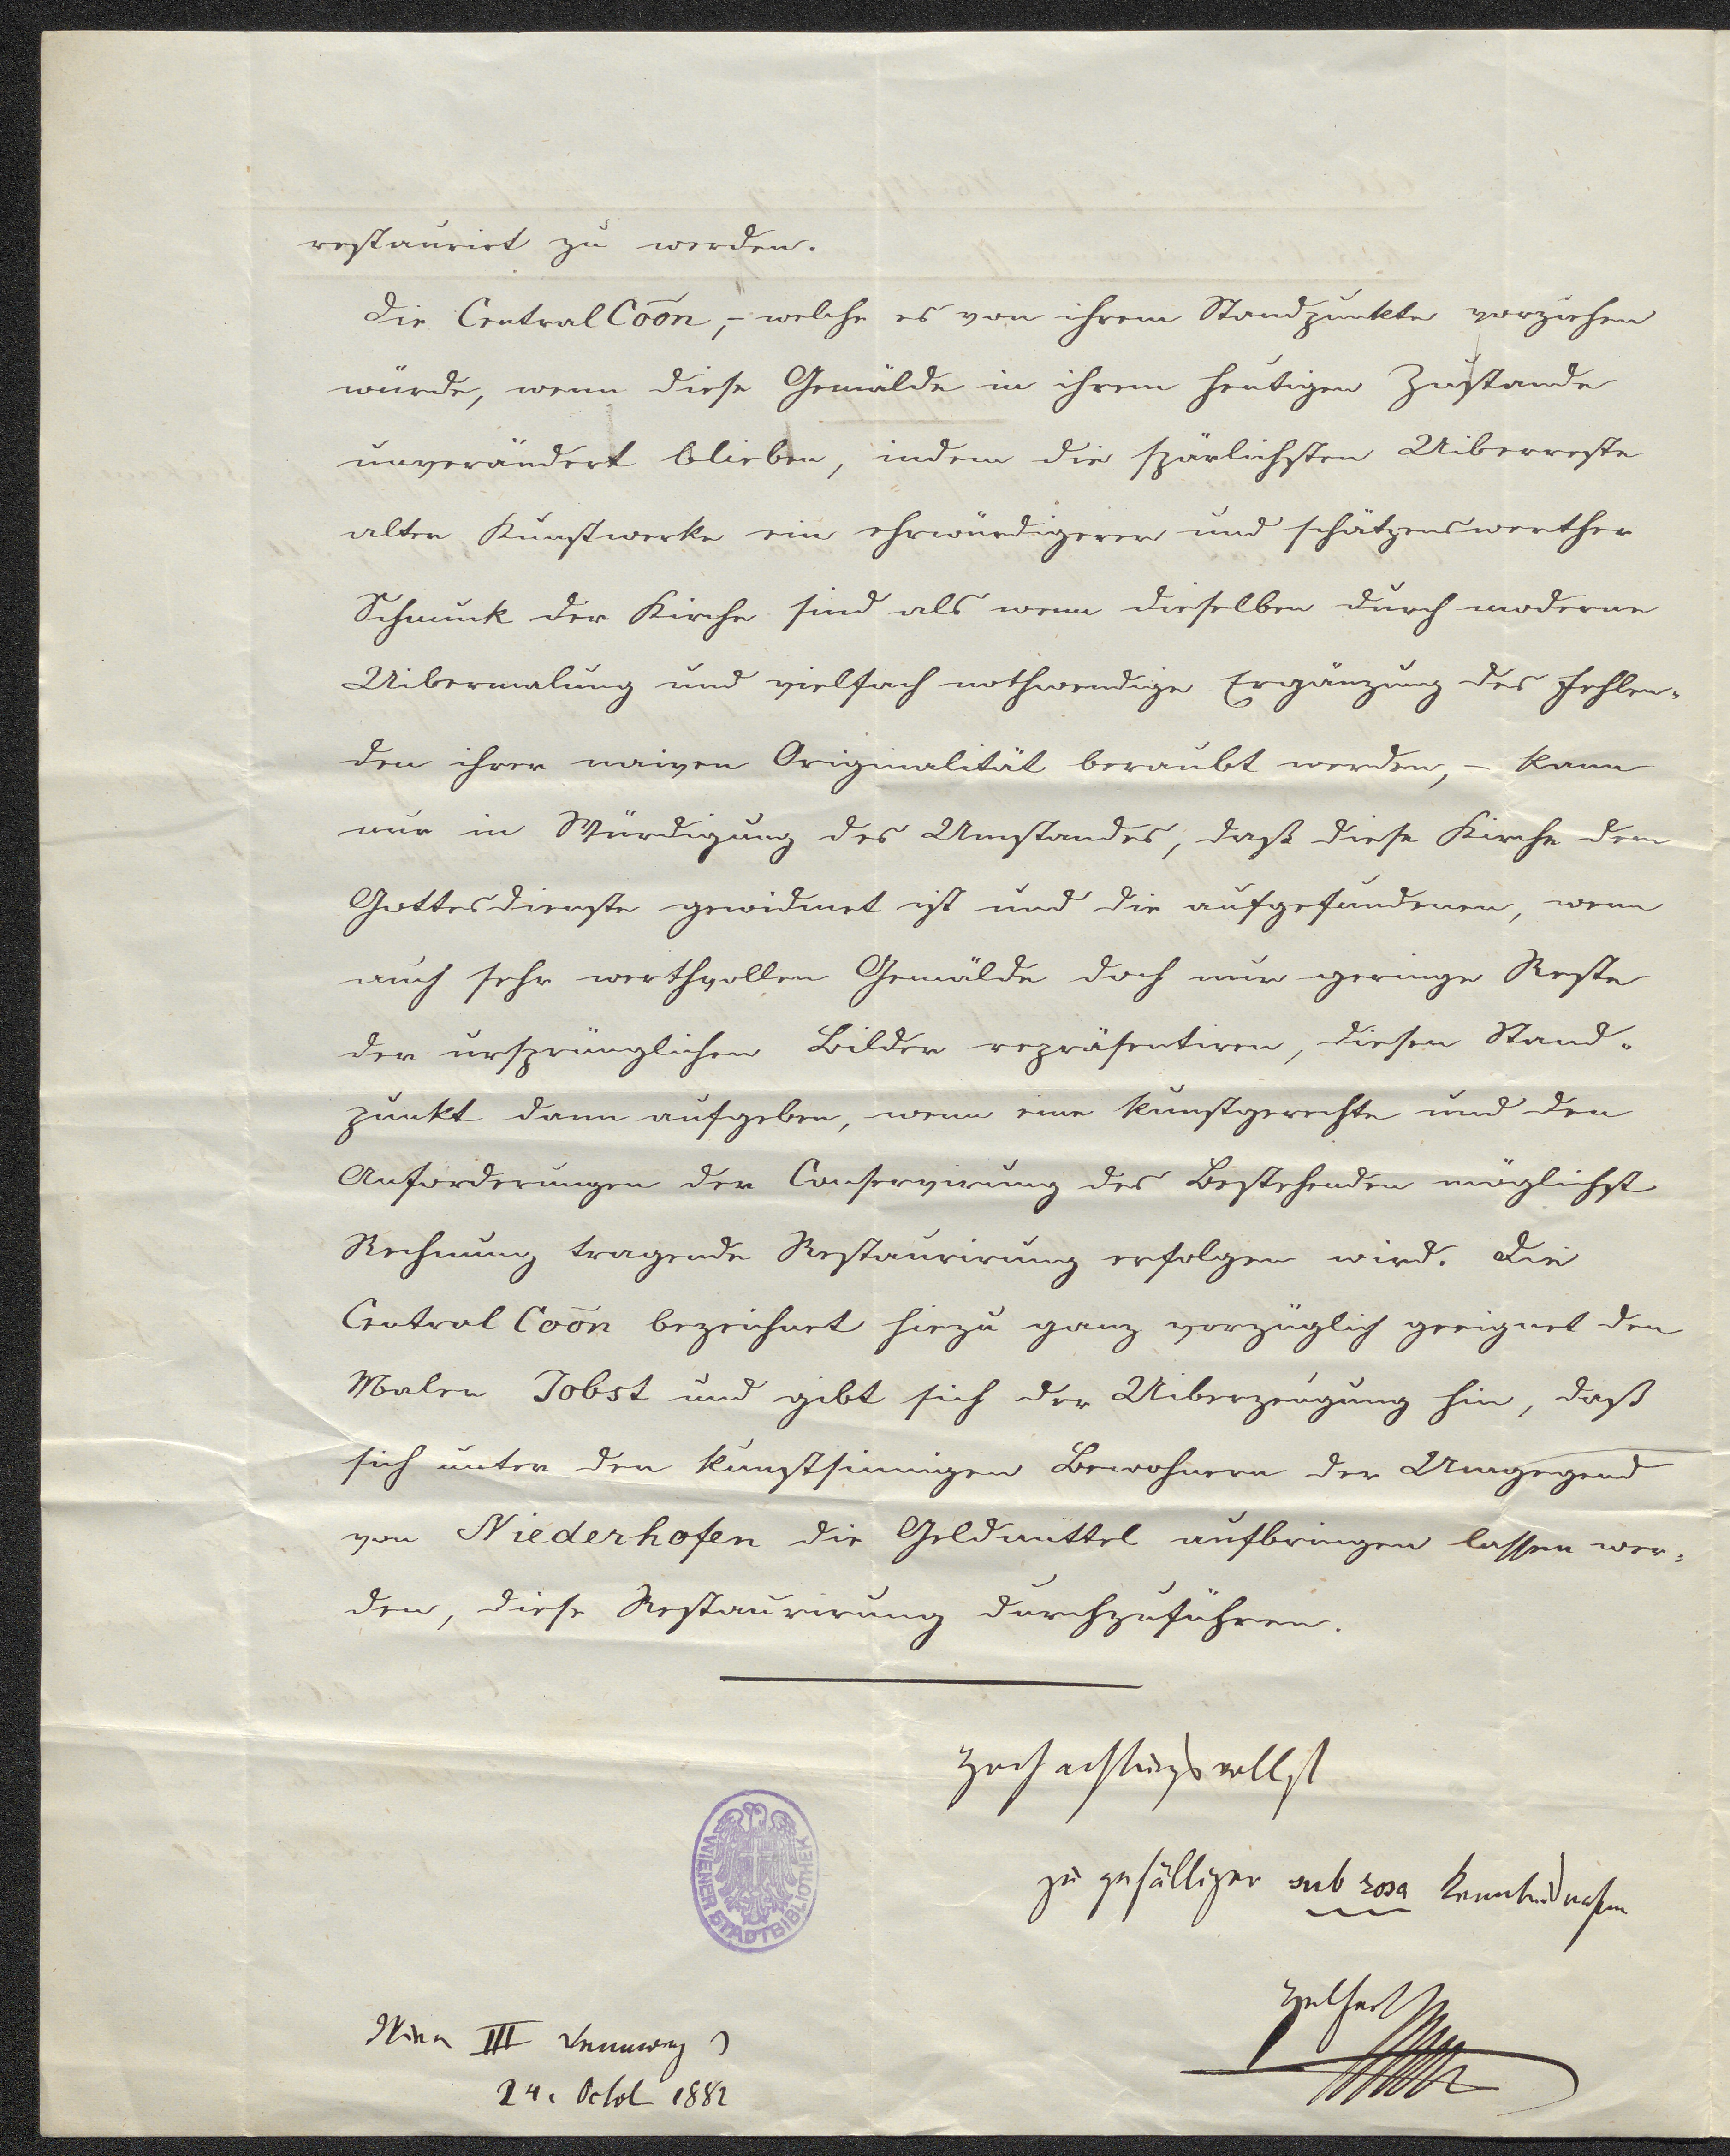 restaurirt zu werden.
Die Central Coōn, – welche es von ihrem Standpunkte vorziehen
würde, wenn diese Gemälde in ihrem heutigen Zustande
unverändert blieben, indem die spärlichsten Uiberreste
alter Kunstwerke ein ehrwürdigerer und schätzenswerther
Schmuck der Kirche sind als wenn dieselben durch moderne
Uibermalung und vielfach nothwendige Ergänzung des Fehlen-
den ihrer naiven Originalität beraubt werden, – kann
nur in Würdigung des Umstandes, daß diese Kirche dem
Gottesdienste gewidmet ist und die aufgefundenen, wenn
auch sehr werthvollen Gemälde doch nur geringe Reste
der ursprünglichen Bilder repräsentiren, diesen Stand-
punkt dann aufgeben, wenn eine kunstgerechte und den
Anforderungen der Conservirung des Bestehenden möglichst
Rechnung tragende Restaurirung erfolgen wird. Die
Central Coōn bezeichnet hiezu ganz vorzüglich geeignet den
Maler Jobst und gibt sich der Uiberzeugung hin, daß
sich unter den kunstsinnigen Bewohnern der Umgegend
von Niederhofen die Geldmittel aufbringen lassen wer-
den, diese Restaurirung durchzuführen.
Hochachtungsvollst
zu gefälliger sub rosa Kenntnißnahme
Helfert
WIENER STADTBIBLIOTHEK
Wien III Rennweg 3
24. Octob 1882